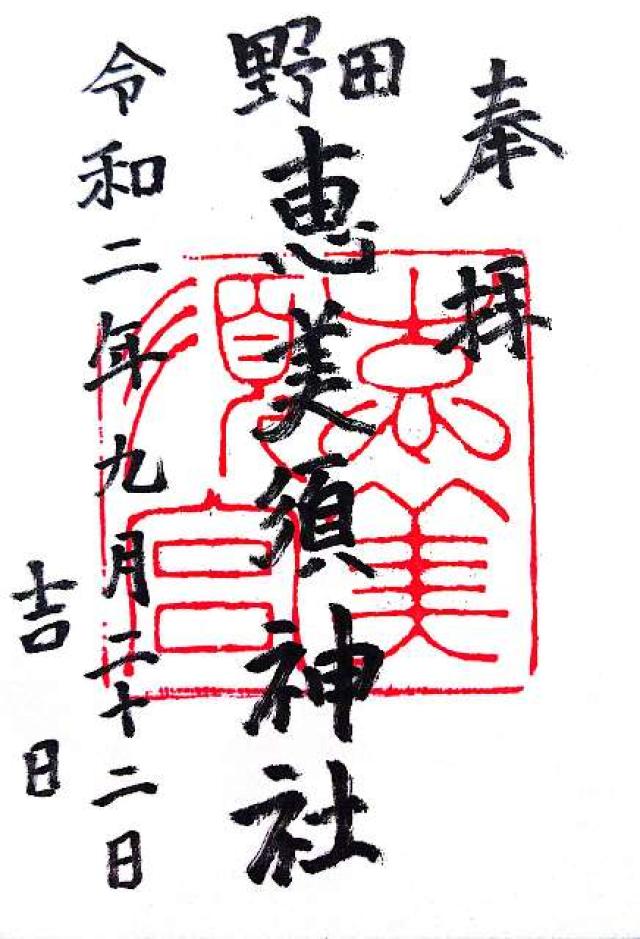 奉拝
野田
恵美須神社
令和二年九月二十二日
吉日
恵美
須宮